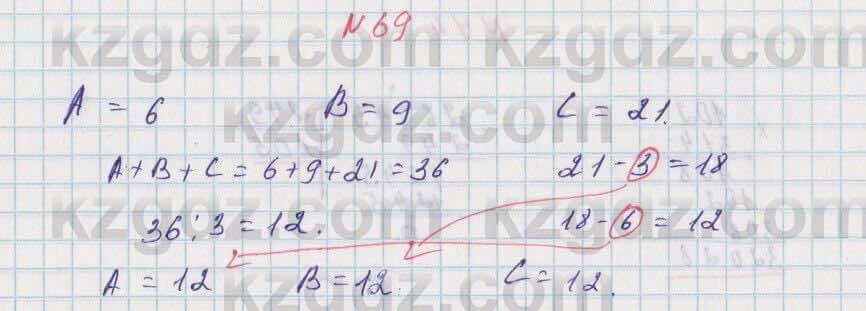 N 69
A = 6 B = 9 C = 21.
A + B + C = 6 + 9 + 21 = 36 21 - 3 = 18
36 : 3 = 12. 18 - 6 = 12
A = 12 B = 12. C = 12.
kzgdz.com kzgdz.com
kzgdz.com kzgdz.com
kzgdz.com kzgdz.com